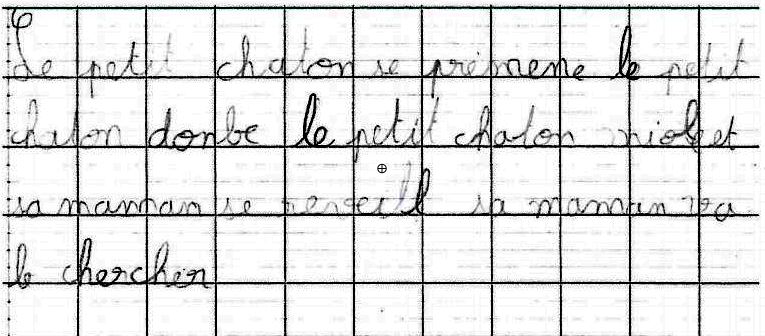 Le petit chaton se prémene le petit
chaton donbe le petit chaton miole et
sa manman se reveill sa maman va
le chercher